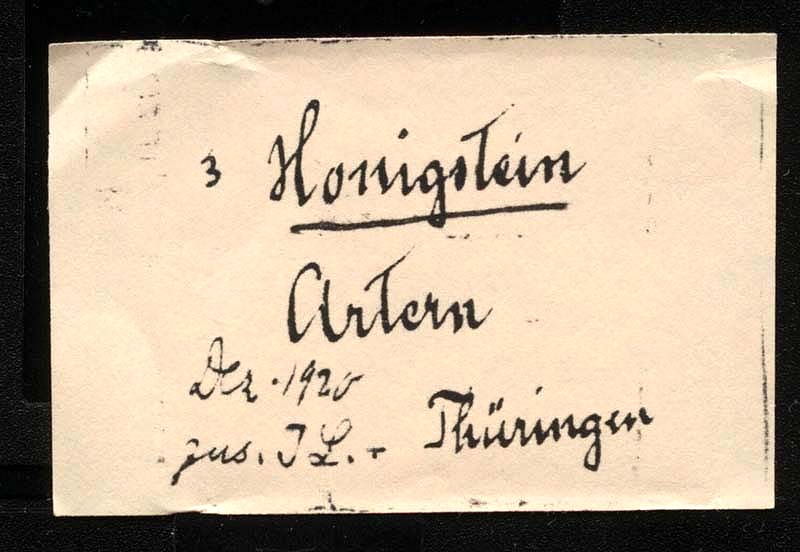 3 Honigstein
Artern
Dez. 1920
zus. I L. –
Thüringen